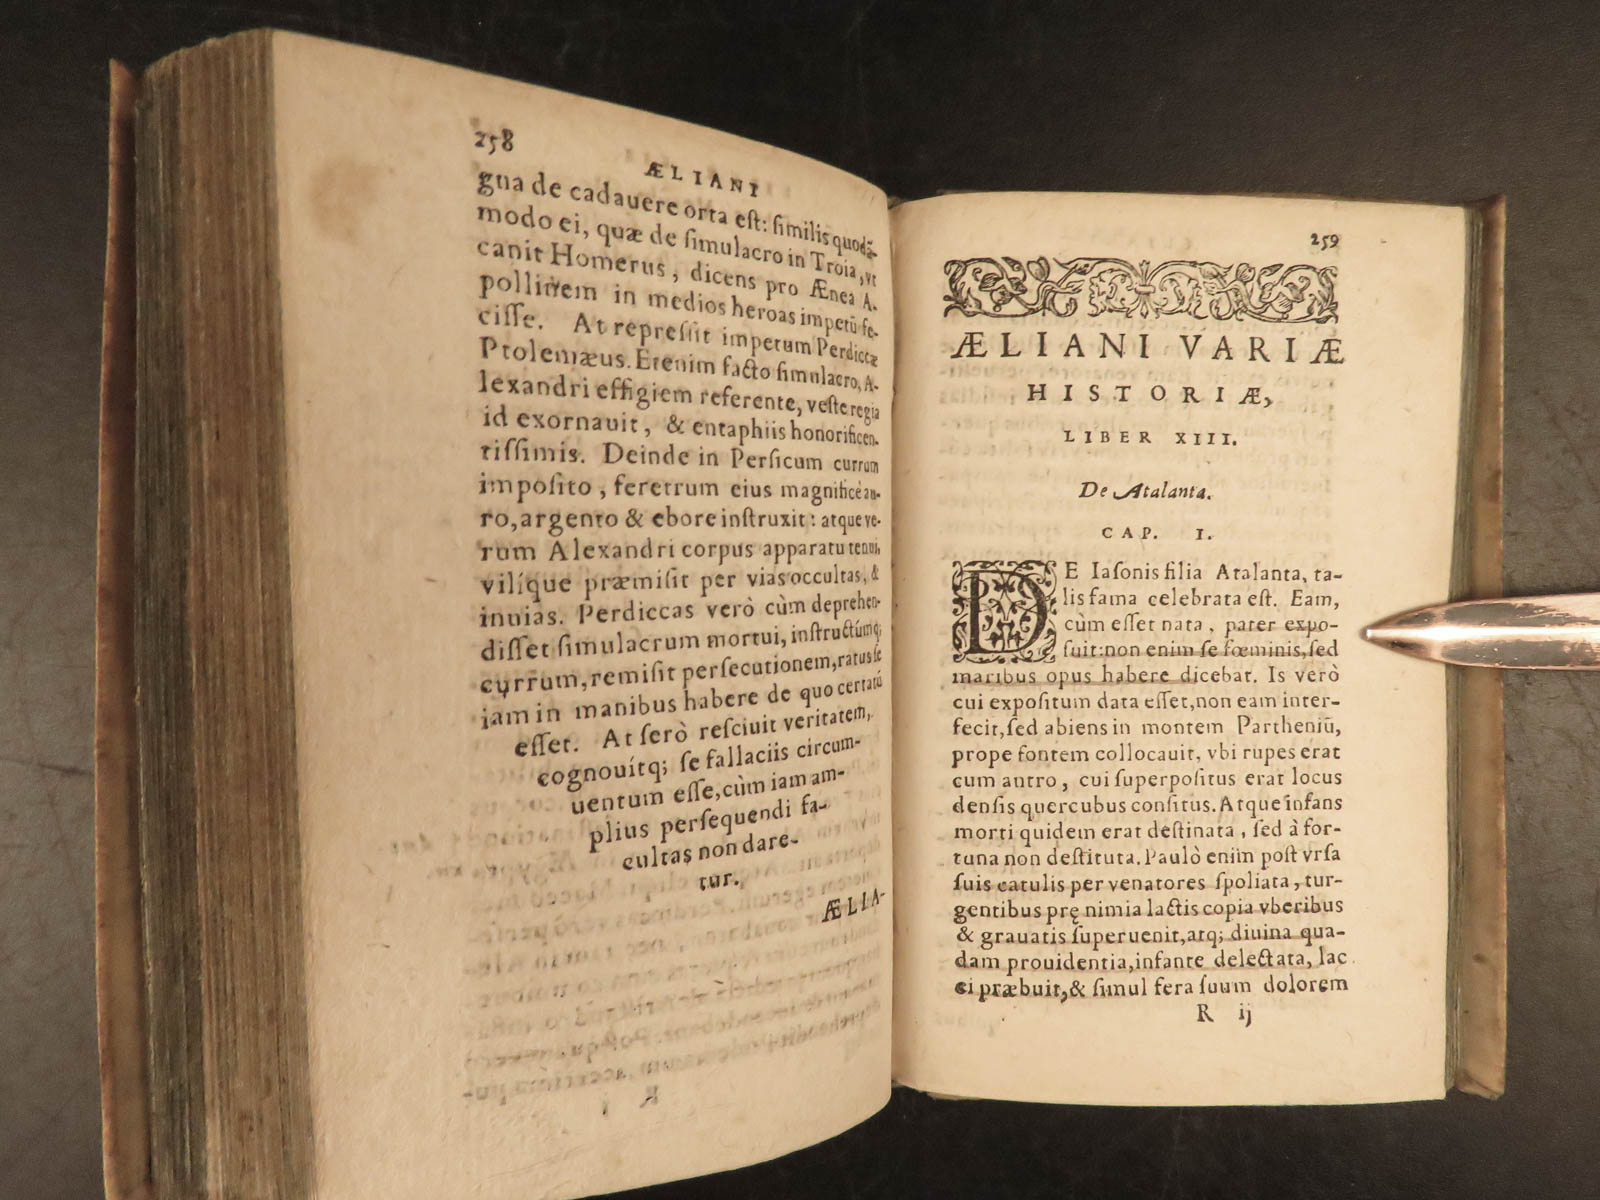 258
ÆLIANI
gna de cadauere orta eſt: ſimilis quodã-
modo ei, quæ de ſimulacro in Troia, vt
canit Homerus, dicens pro Ænea A-
pollinem in medios heroas impetũ fe-
ciſſe. At repreſſit impetum Perdiccæ
Ptolemæus. Etenim facto ſimulacro, A-
lexandri effigiem referente, veſte regia
id exornauit, & entaphiis honorificen-
tiſſimis. Deinde in Perſicum currum
impoſito, feretrum eius magnificè au-
ro, argento & ebore inſtruxit: atque ve-
rum Alexandri corpus apparatu tenui,
vilíque præmiſit per vias occultas, &
inuias. Perdiccas verò cùm deprehen-
diſſet ſimulacrum mortui, inſtructúmq;
currum, remiſit perſecutionem, ratus ſe
iam in manibus habere de quo certatũ
eſſet. At ſerò reſciuit veritatem,
cognouítq; ſe fallaciis circum-
uentum eſſe, cùm iam am-
plius perſequendi fa-
cultas non dare-
tur.
ÆLIA-
259
ÆLIANI VARIÆ
HISTORIÆ,
LIBER XIII.
De Atalanta.
CAP. I.
DE Iaſonis filia Atalanta, ta-
lis fama celebrata eſt. Eam,
cùm eſſet nata, pater expo-
ſuit: non enim ſe fœminis, ſed
maribus opus habere dicebat. Is verò
cui expoſitum data eſſet, non eam inter-
fecit, ſed abiens in montem Partheniũ,
prope fontem collocauit, vbi rupes erat
cum antro, cui ſuperpoſitus erat locus
denſis quercubus conſitus. Atque infans
morti quidem erat deſtinata, ſed à for-
tuna non deſtituta. Paulò enim poſt vrſa
ſuis catulis per venatores ſpoliata, tur-
gentibus prę nimia lactis copia vberibus
& grauatis ſuperuenit, atq; diuina qua-
dam prouidentia, infante delectata, lac
ei præbuit, & ſimul fera ſuum dolorem
R ij